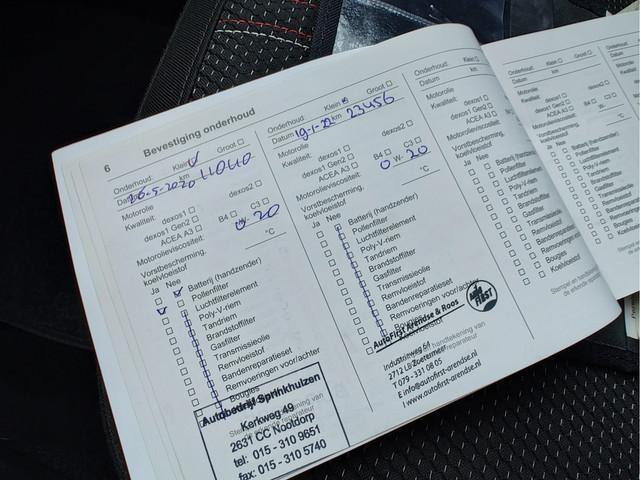 6 Bevestiging onderhoud
Onderhoud: Klein Groot
Datum 26-5-2020 km 11040
Motorolie
Kwaliteit: dexos1 dexos2
dexos1 Gen2
ACEA A3 B4 C3
Motorolieviscositeit: 0 W- 20
Vorstbescherming,
koelvloeistof °C
Ja Nee
Batterij (handzender)
Pollenfilter
Luchtfilterelement
Poly-V-riem
Tandriem
Brandstoffilter
Gasfilter
Transmissieolie
Remvloeistof
Bandenreparatieset
Remvoeringen voor/achter
Bougies
Autobedrijf Sprinkhuizen
Kerkweg 49
2631 CC Nooldorp
tel: 015 - 310 9651
fax: 015 - 310 5740
Onderhoud: Klein Groot
Datum 19-1-22 km 23456
Motorolie
Kwaliteit: dexos1 dexos2
dexos1 Gen2
ACEA A3 B4 C3
Motorolieviscositeit: 0 W- 20
Vorstbescherming,
koelvloeistof °C
Ja Nee
Batterij (handzender)
Pollenfilter
Luchtfilterelement
Poly-V-riem
Tandriem
Brandstoffilter
Gasfilter
Transmissieolie
Remvloeistof
Bandenreparatieset
Remvoeringen voor/achter
Bougies
Koelvloeistof
AutoFirst Arendse & Roos
Auto FIRST
Industrieweg 64
2712 LB Zoetermeer
T 079 - 331 08 05
E info@autofirst-arendse.nl
I www.autofirst-arendse.nl
Onderhoud: Klein
Datum km
Motorolie
Kwaliteit:
dexos1
dexos1 Gen2
ACEA A3
Motorolieviscositeit
Vorstbescherming,
koelvloeistof
Ja Nee
Onderhoud: Klein Groot
Datum km
Motorolie
Kwaliteit: dexos1 dexos2
dexos1 Gen2
ACEA A3 B4 C3
Motorolieviscositeit:
Vorstbescherming,
koelvloeistof
Ja Nee
Batterij (handzender)
Pollenfilter
Luchtfilterelement
Poly-V-riem
Tandriem
Brandstoffilter
Gasfilter
Transmissieolie
Remvloeistof
Bandenreparatieset
Remvoeringen
Bougies
Koelvloeistof